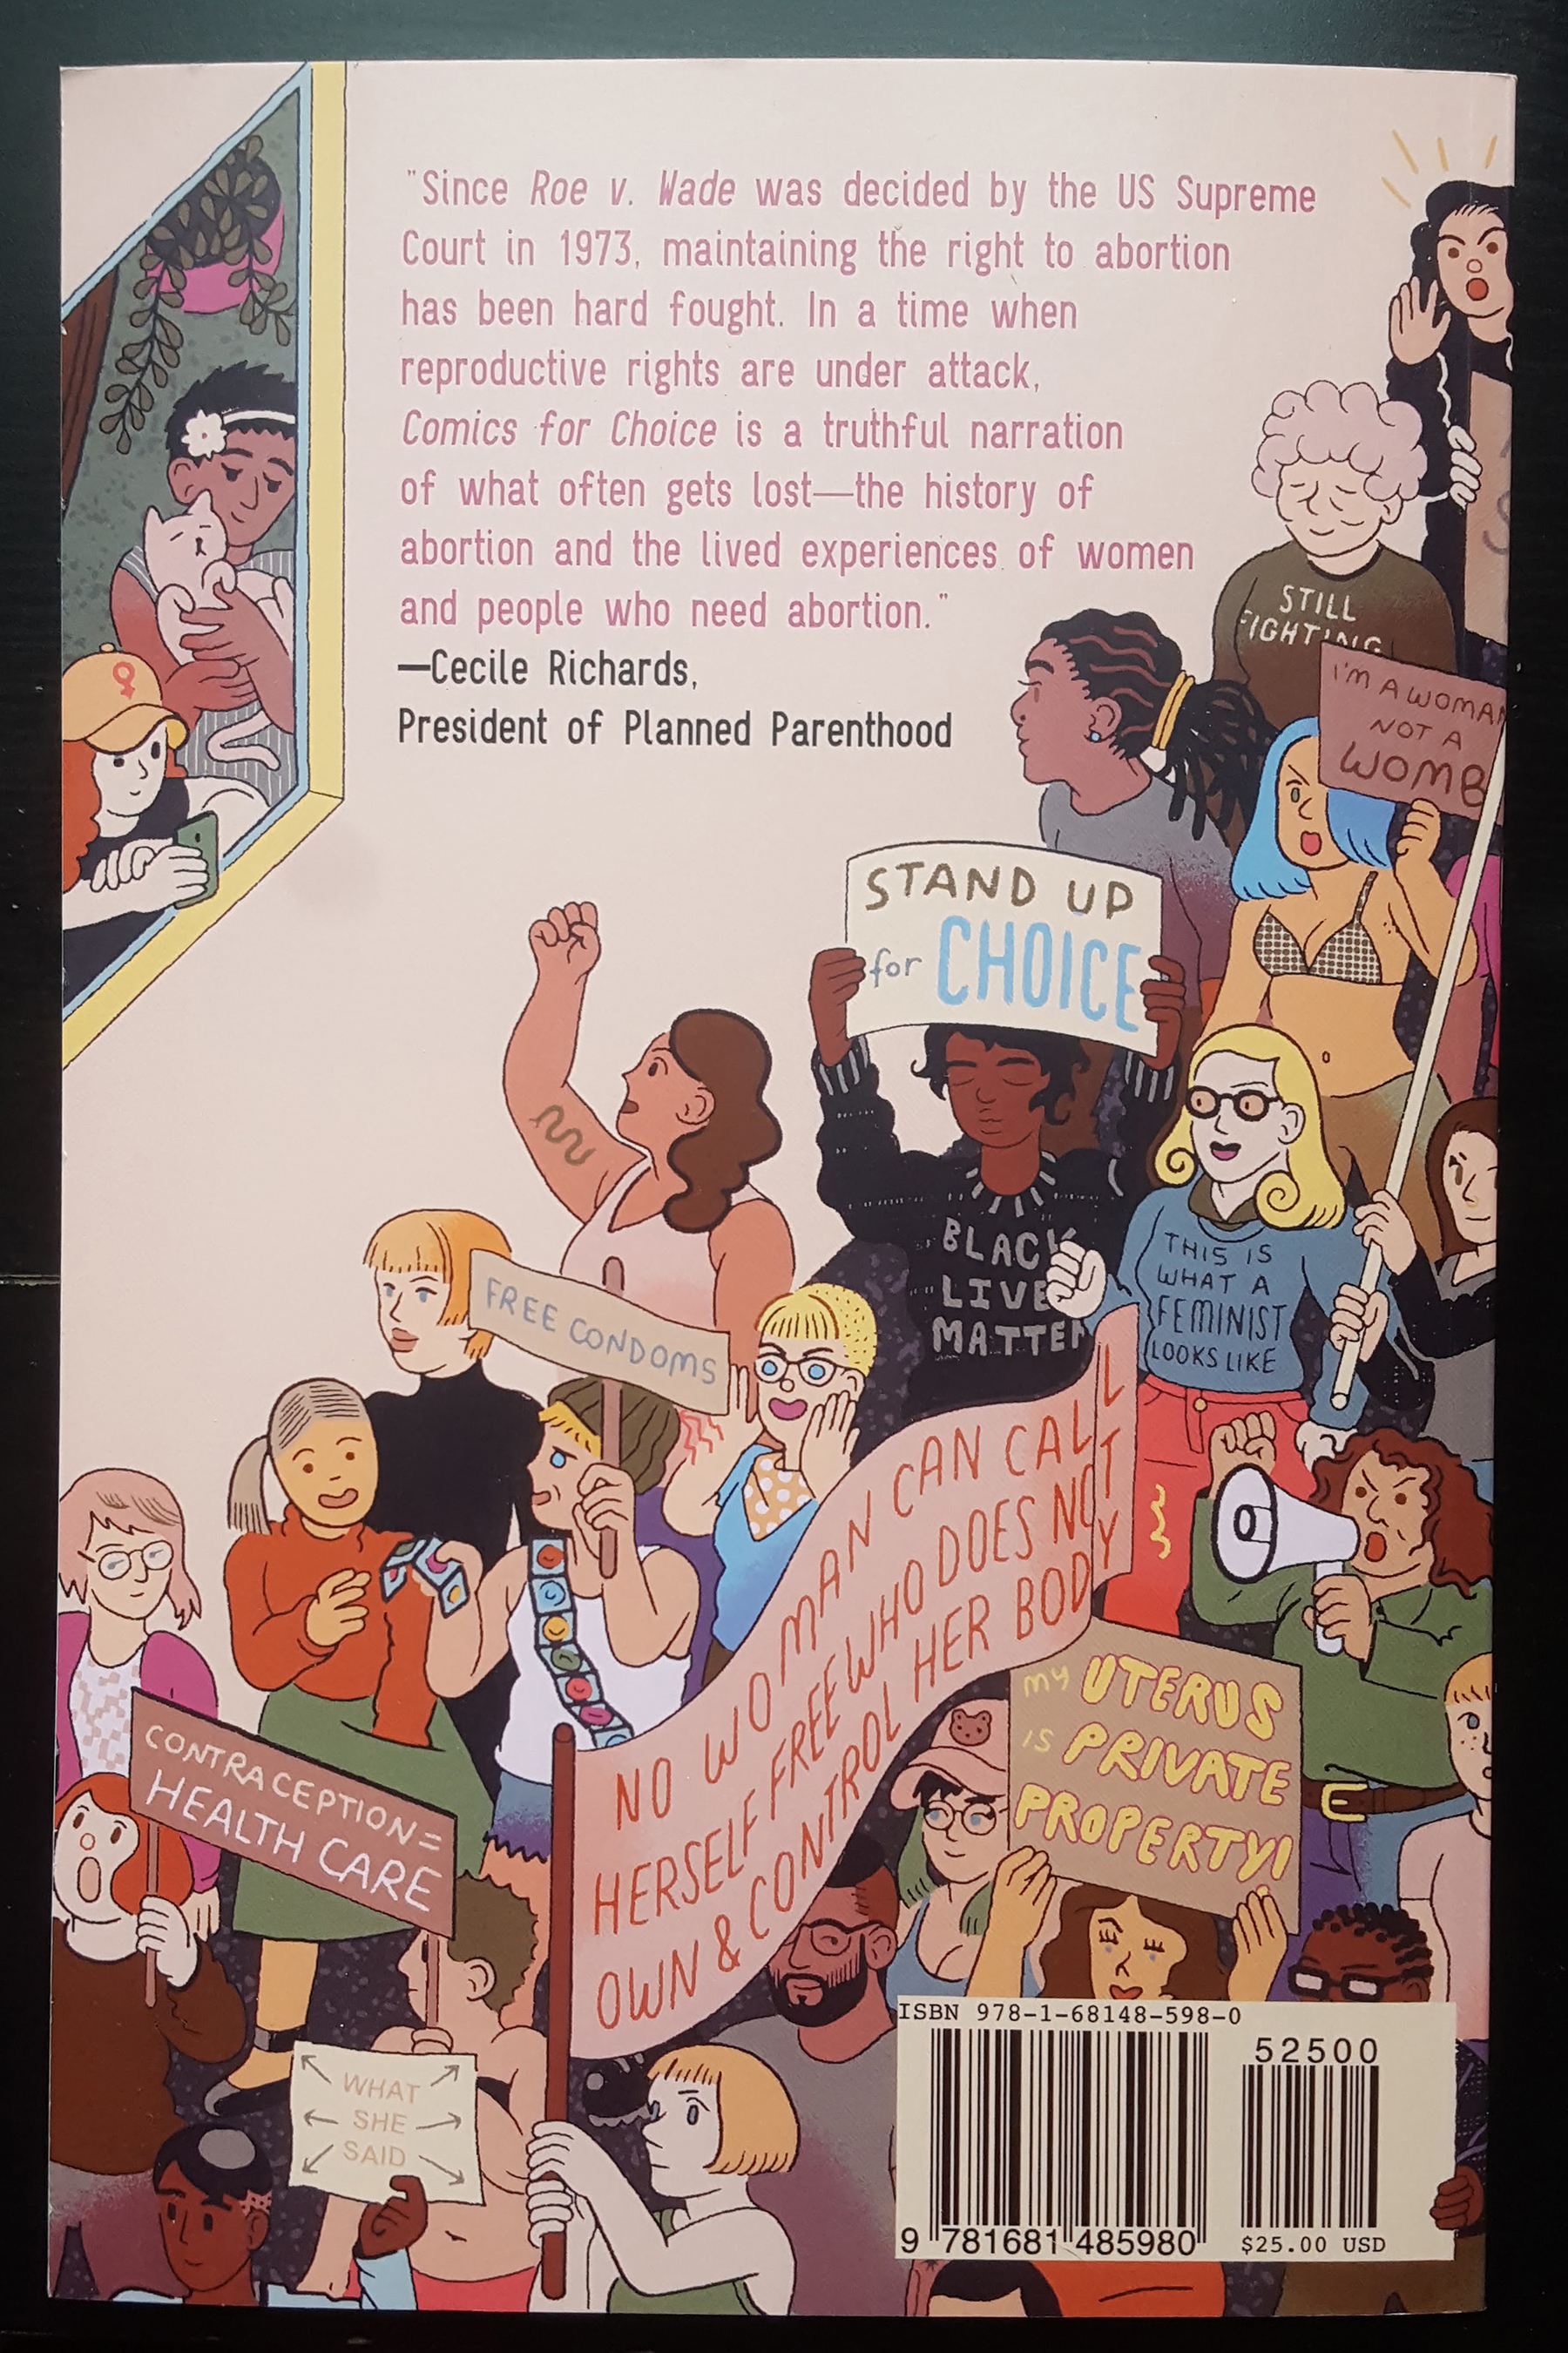 "Since Roe v. Wade was decided by the US Supreme
Court in 1973, maintaining the right to abortion
has been hard fought. In a time when
reproductive rights are under attack,
Comics for Choice is a truthful narration
of what often gets lost—the history of
abortion and the lived experiences of women
and people who need abortion."
—Cecile Richards,
President of Planned Parenthood
STILL
FIGHTING
I'M A WOMAN
NOT A
WOMB
STAND UP
for CHOICE
BLACK
LIVE
MATTER
THIS IS
WHAT A
FEMINIST
LOOKS LIKE
FREE CONDOMS
NO WOMAN CAN CALL
HERSELF FREE WHO DOES NOT
OWN & CONTROL HER BODY
MY UTERUS
IS PRIVATE
PROPERTY!
CONTRACEPTION =
HEALTH CARE
WHAT
SHE
SAID
ISBN 978-1-68148-598-0
52500
9 781681 485980
$25.00 USD